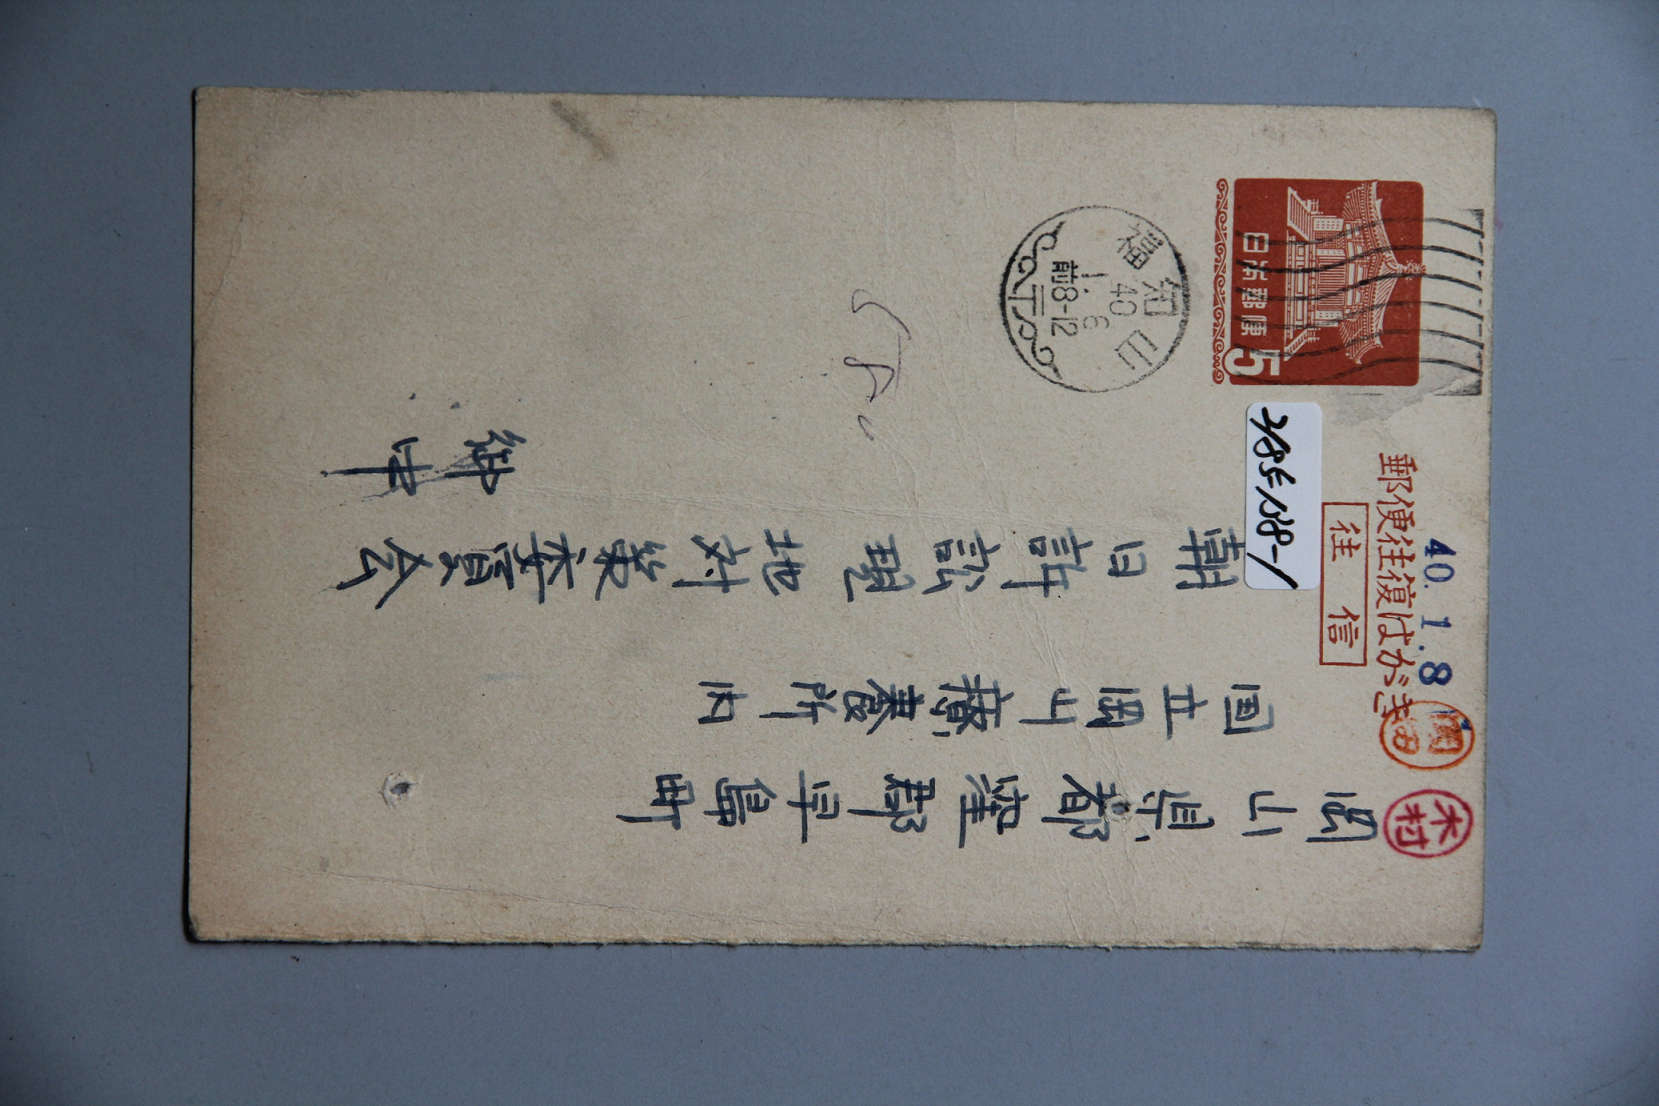 郵便往復はがき
往信
日本郵便
5
福知山
40
1. 6
前8-12
40. 1. 8
木村
岡山県都窪郡早島町
国立岡山療養所内
朝日訴訟現地対策委員会
御中